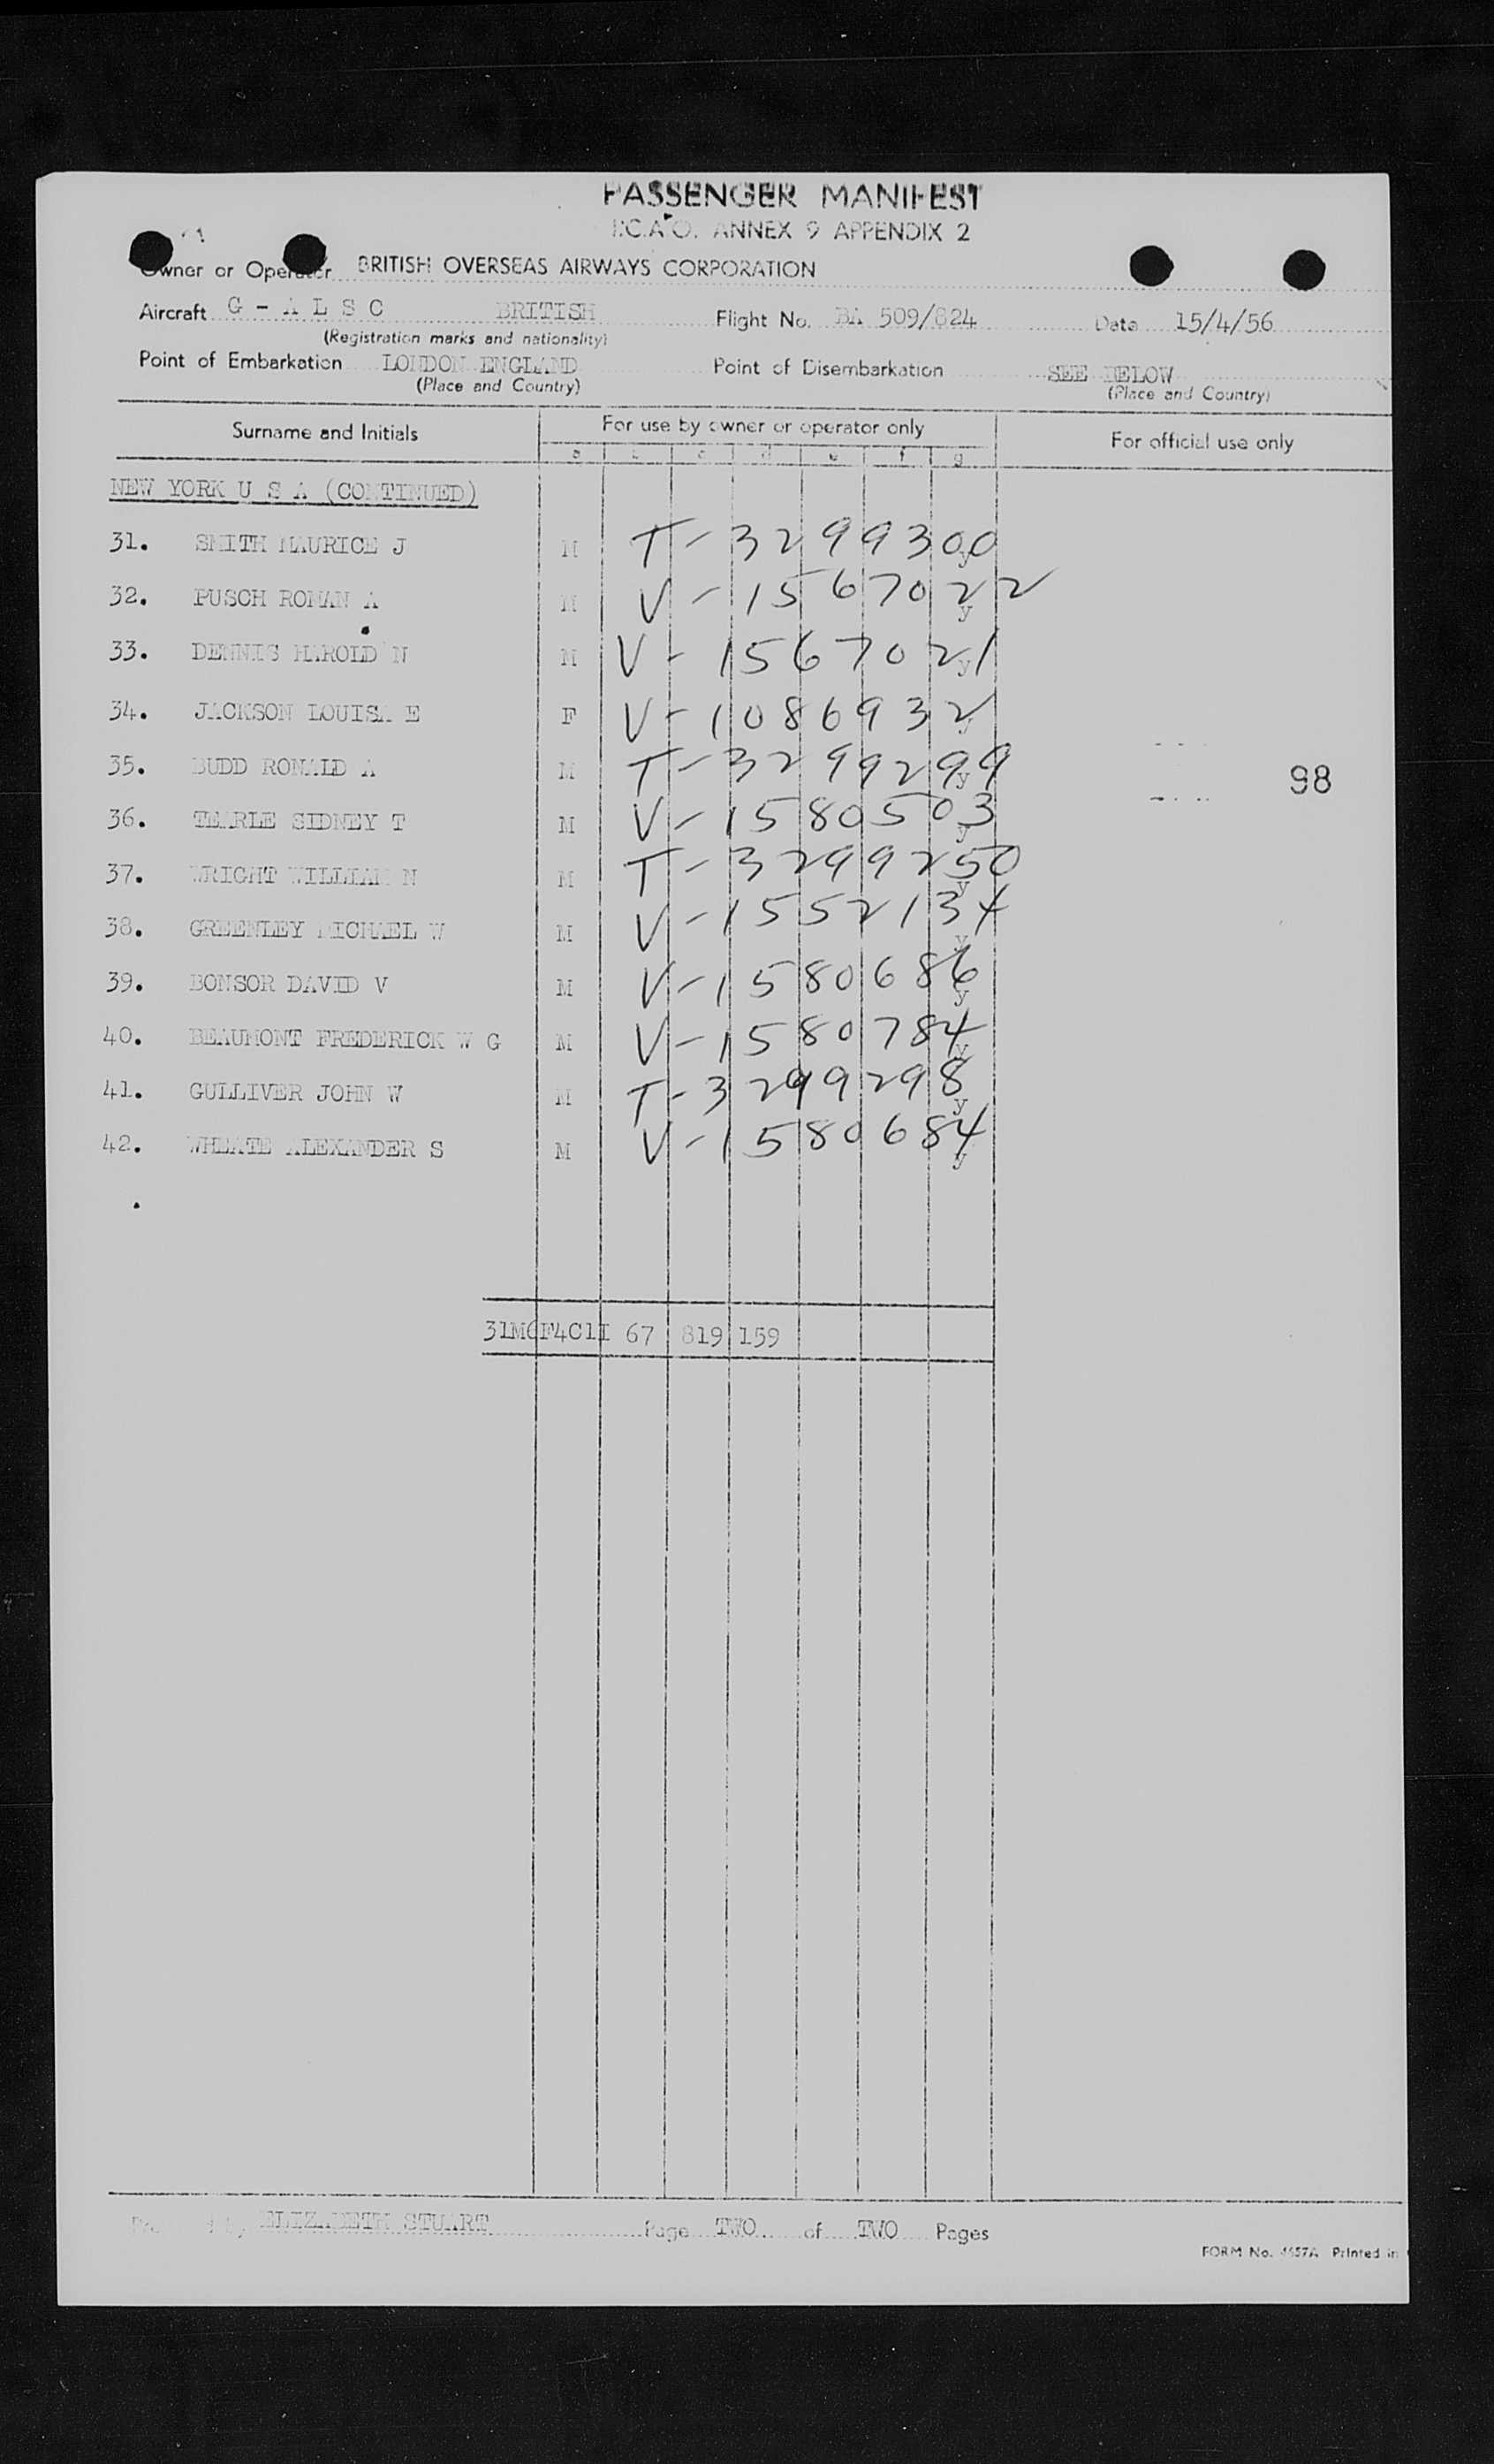 PASSENGER MANIFEST
I.C.A.O. ANNEX 9 APPENDIX 2
Owner or Operator BRITISH OVERSEAS AIRWAYS CORPORATION
Aircraft G - A L S C BRITISH Flight No. BA 509/824 Date 15/4/56
(Registration marks and nationality)
Point of Embarkation LONDON ENGLAND Point of Disembarkation SEE BELOW
(Place and Country) (Place and Country)
Surname and Initials For use by owner or operator only For official use only
a b c d e f g
NEW YORK U S A (CONTINUED)
31. SMITH MAURICE J M T-3299300 y
32. PUSCH ROMAN A M V-1567022 y
33. DENNIS HAROLD N M V-1567021 y
34. JACKSON LOUISA E F V-1086932 y
35. BUDD RONALD A M T-3299299 y
98
36. TEARLE SIDNEY T M V-1580503 y
37. WRIGHT WILLIAM N M T-3299250 y
38. GREENLEY MICHAEL W M V-1552134 y
39. BONSOR DAVID V M V-1580686 y
40. BEAUMONT FREDERICK W G M V-1580784 y
41. GULLIVER JOHN W M T-3299298 y
42. WHEATE ALEXANDER S M V-1580684 y
31M6F4C1I 67 819 159
ELIZABETH STUART Page TWO of TWO Pages
FORM No. Printed in